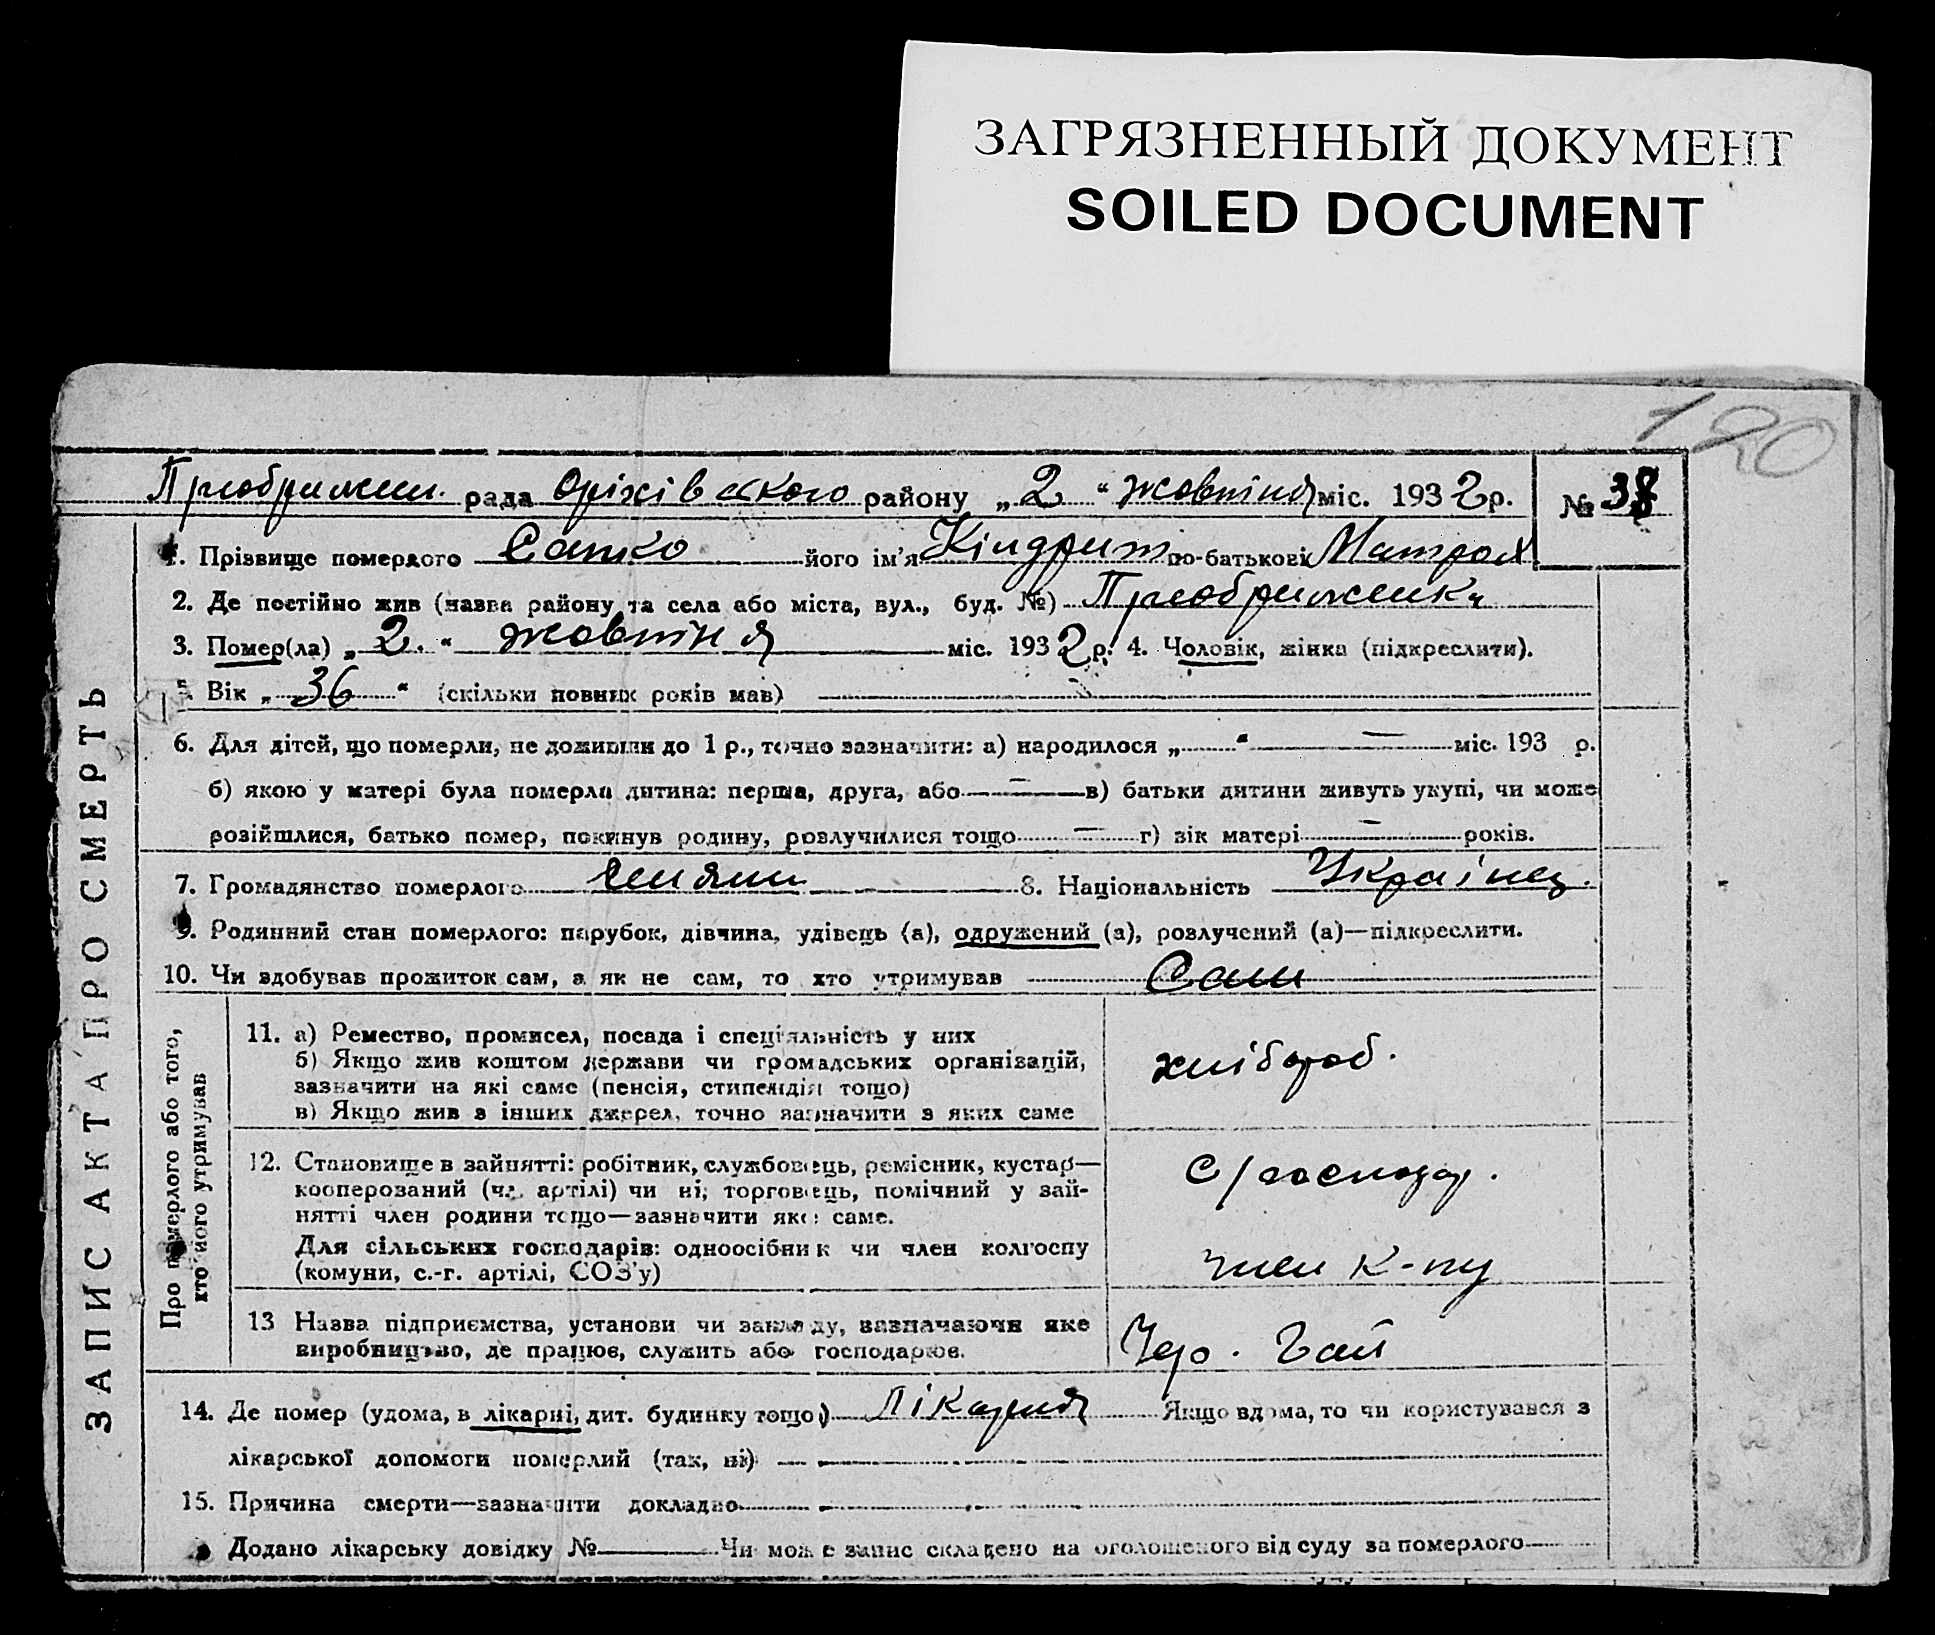 ЗАГРЯЗНЕННЫЙ ДОКУМЕНТ
SOILED DOCUMENT
120
Преображен. рада Оріхівського району „2“ жовтня міс. 1932 р. № 38
1. Прізвище померлого Сапко його ім'я Кіндрат по-батькові
2. Де постійно жив (назва району та села або міста, вул., буд. №) Преображенка
3. Помер(ла) „2.“ жовтня міс. 1932 р. 4. Чоловік, жінка (підкреслити).
5. Вік „36“ (скільки повних років мав)
6. Для дітей, що померли, не доживши до 1 р., точно зазначити: а) народилося „ “ — міс. 193 р.
б) якою у матері була померла дитина: перша, друга, або — в) батьки дитини живуть укупі, чи може
розійшлися, батько помер, покинув родину, розлучилися тощо — г) вік матері — років.
7. Громадянство померлого 8. Національність Українец.
9. Родинний стан померлого: парубок, дівчина, удівець (а), одружений (а), розлучений (а)—підкреслити.
10. Чи здобував прожиток сам, а як не сам, то хто утримував Сам
ЗАПИС АКТА ПРО СМЕРТЬ
Про померлого або того,
хто його утримував
11. а) Ремество, промисел, посада і спеціяльність у них
б) Якщо жив коштом держави чи громадських організацій,
зазначити на які саме (пенсія, стипендія тощо)
в) Якщо жив з інших джерел, точно зазначити з яких саме
хлібороб.
12. Становище в зайнятті: робітник, службовець, ремісник, кустар—
кооперований (чл. артілі) чи ні; торговець, помічний у зай-
нятті член родини тощо—зазначити яке саме.
Для сільських господарів: одноосібник чи член колгоспу
(комуни, с.-г. артілі, СОЗ'у)
С/господар.
член к-пу
13 Назва підприємства, установи чи закладу, зазначаючи яке
виробництво, де працює, служить або господарює.
Чер. Гай
14. Де помер (удома, в лікарні, дит. будинку тощо) Лікарня Якщо вдома, то чи користувався з
лікарської допомоги померлий (так, ні) —
15. Причина смерти—зазначити докладно
Додано лікарську довідку № Чи може запис складено на оголошеного від суду за померлого